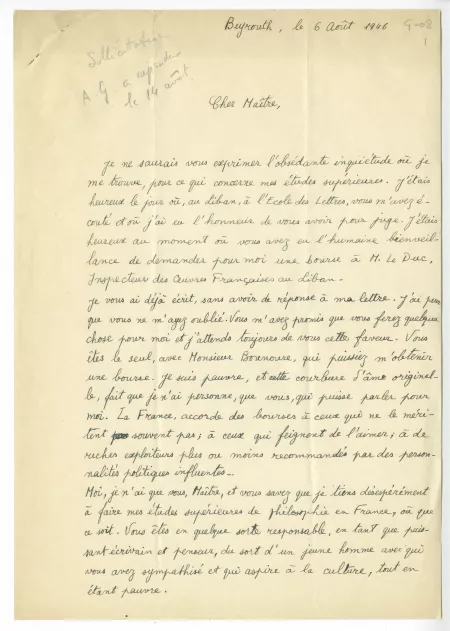 Beyrouth, le 6 Août 1946
G-08
1
Sollicitation
A G a répondu
le 14 août
Cher Maître,
Je ne saurais vous exprimer l'obsédante inquiétude où je
me trouve, pour ce qui concerne mes études supérieures. J'étais
heureux le jour où, au Liban, à l'Ecole des Lettres, vous m'avez é-
couté et où j'ai eu l'honneur de vous avoir pour juge. J'étais
heureux au moment où vous avez eu l'humaine bienveil-
lance de demander pour moi une bourse à M. Le Duc,
Inspecteur des Œuvres Françaises au Liban-
Je vous ai déjà écrit, sans avoir de réponse à ma lettre. J'ai peur
que vous ne m'ayez oublié. Vous m'avez promis que vous ferez quelque
chose pour moi et j'attends toujours de vous cette faveur. Vous
êtes le seul, avec Monsieur Bounoure, qui puissiez m'obtenir
une bourse. Je suis pauvre, et cette courbure d'âme originel-
le, fait que je n'ai personne, que vous, qui puisse parler pour
moi. La France, accorde des bourses à ceux qui ne le méri-
tent souvent pas; à ceux qui feignent de l'aimer; à de
riches exploiteurs plus ou moins recommandés par des person-
nalités politiques influentes-
Moi, je n'ai que vous, Maître, et vous savez que je tiens désespérément
à faire mes études supérieures de Philosophie en France, où que
ce soit. Vous êtes en quelque sorte responsable, en tant que puis-
sant écrivain et penseur, du sort d'un jeune homme avec qui
vous avez sympathisé et qui aspire à la culture, tout en
étant pauvre.